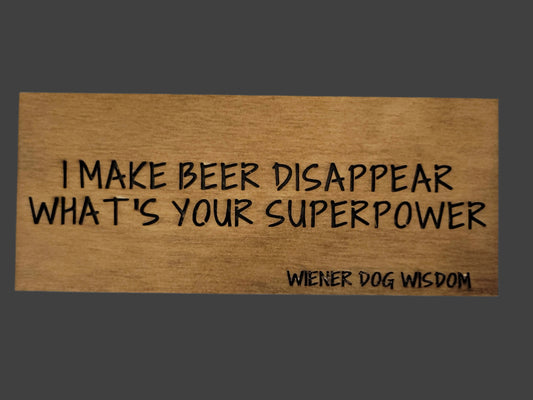 I MAKE BEER DISAPPEAR
WHAT'S YOUR SUPERPOWER
WIENER DOG WISDOM